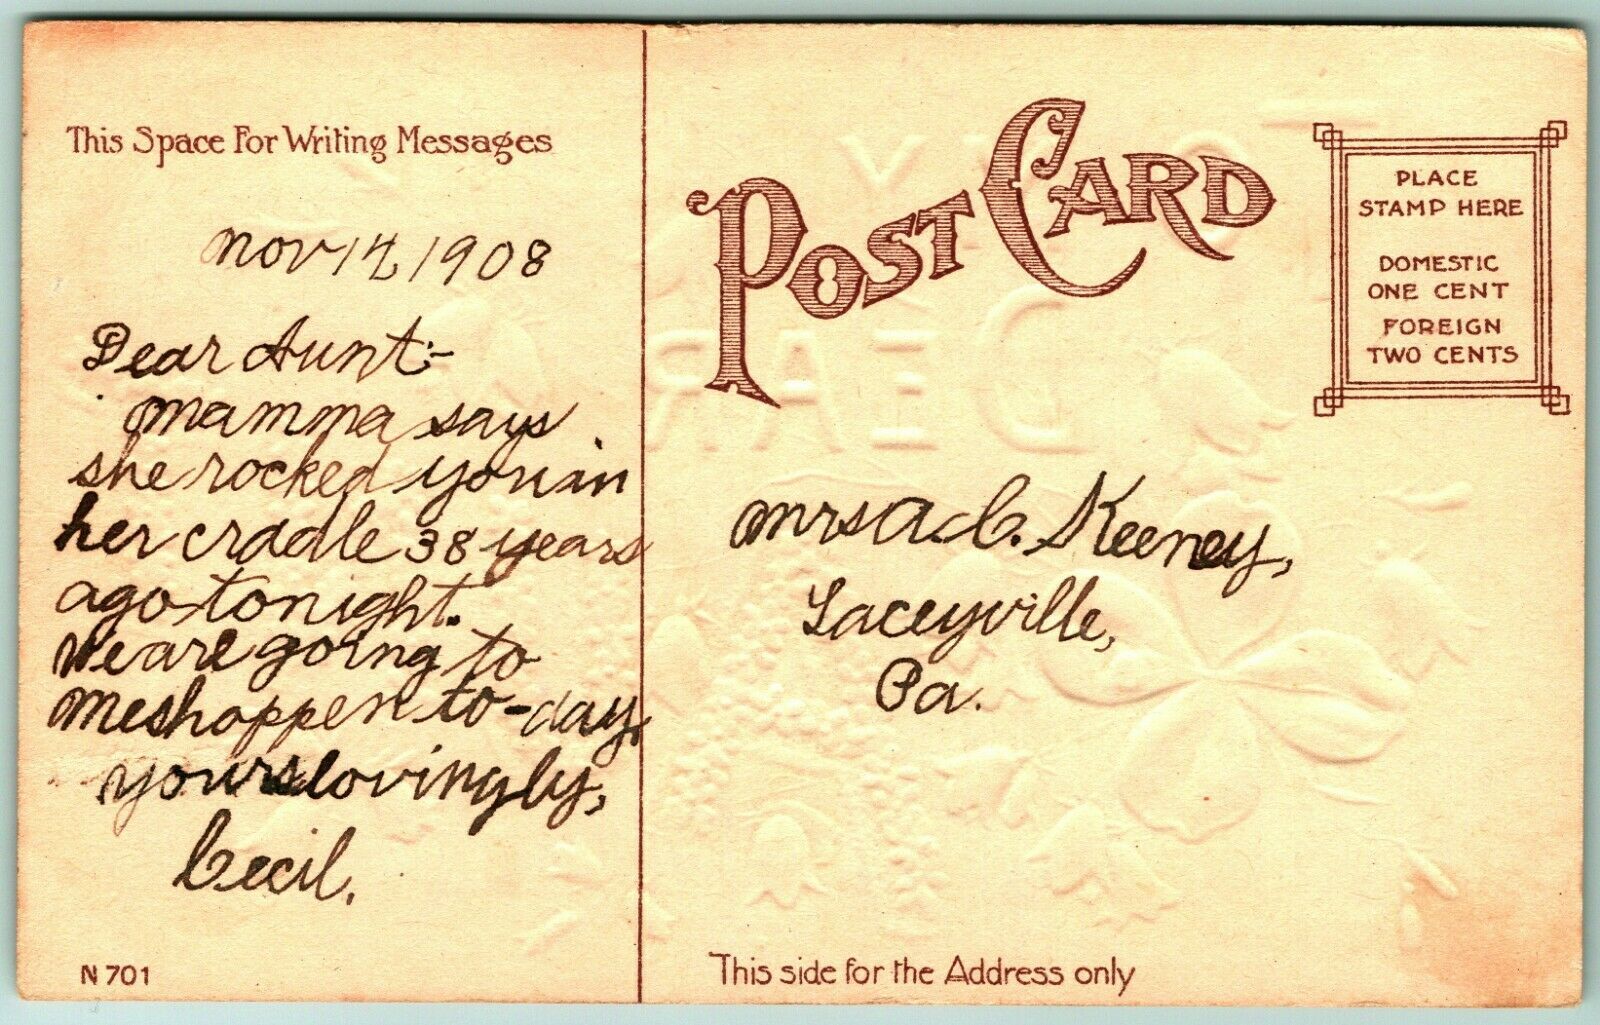 This Space For Writing Messages
Nov 14, 1908
Dear Aunt:-
Mamma says
she rocked you in
her cradle 38 years
ago tonight.
We are going to
Meshoppen to-day.
Yours lovingly,
Cecil.
N 701
POST CARD
PLACE
STAMP HERE
DOMESTIC
ONE CENT
FOREIGN
TWO CENTS
Mrs A. C. Keeney,
Laceyville,
Pa.
This side for the Address only
TO MY
DEAR